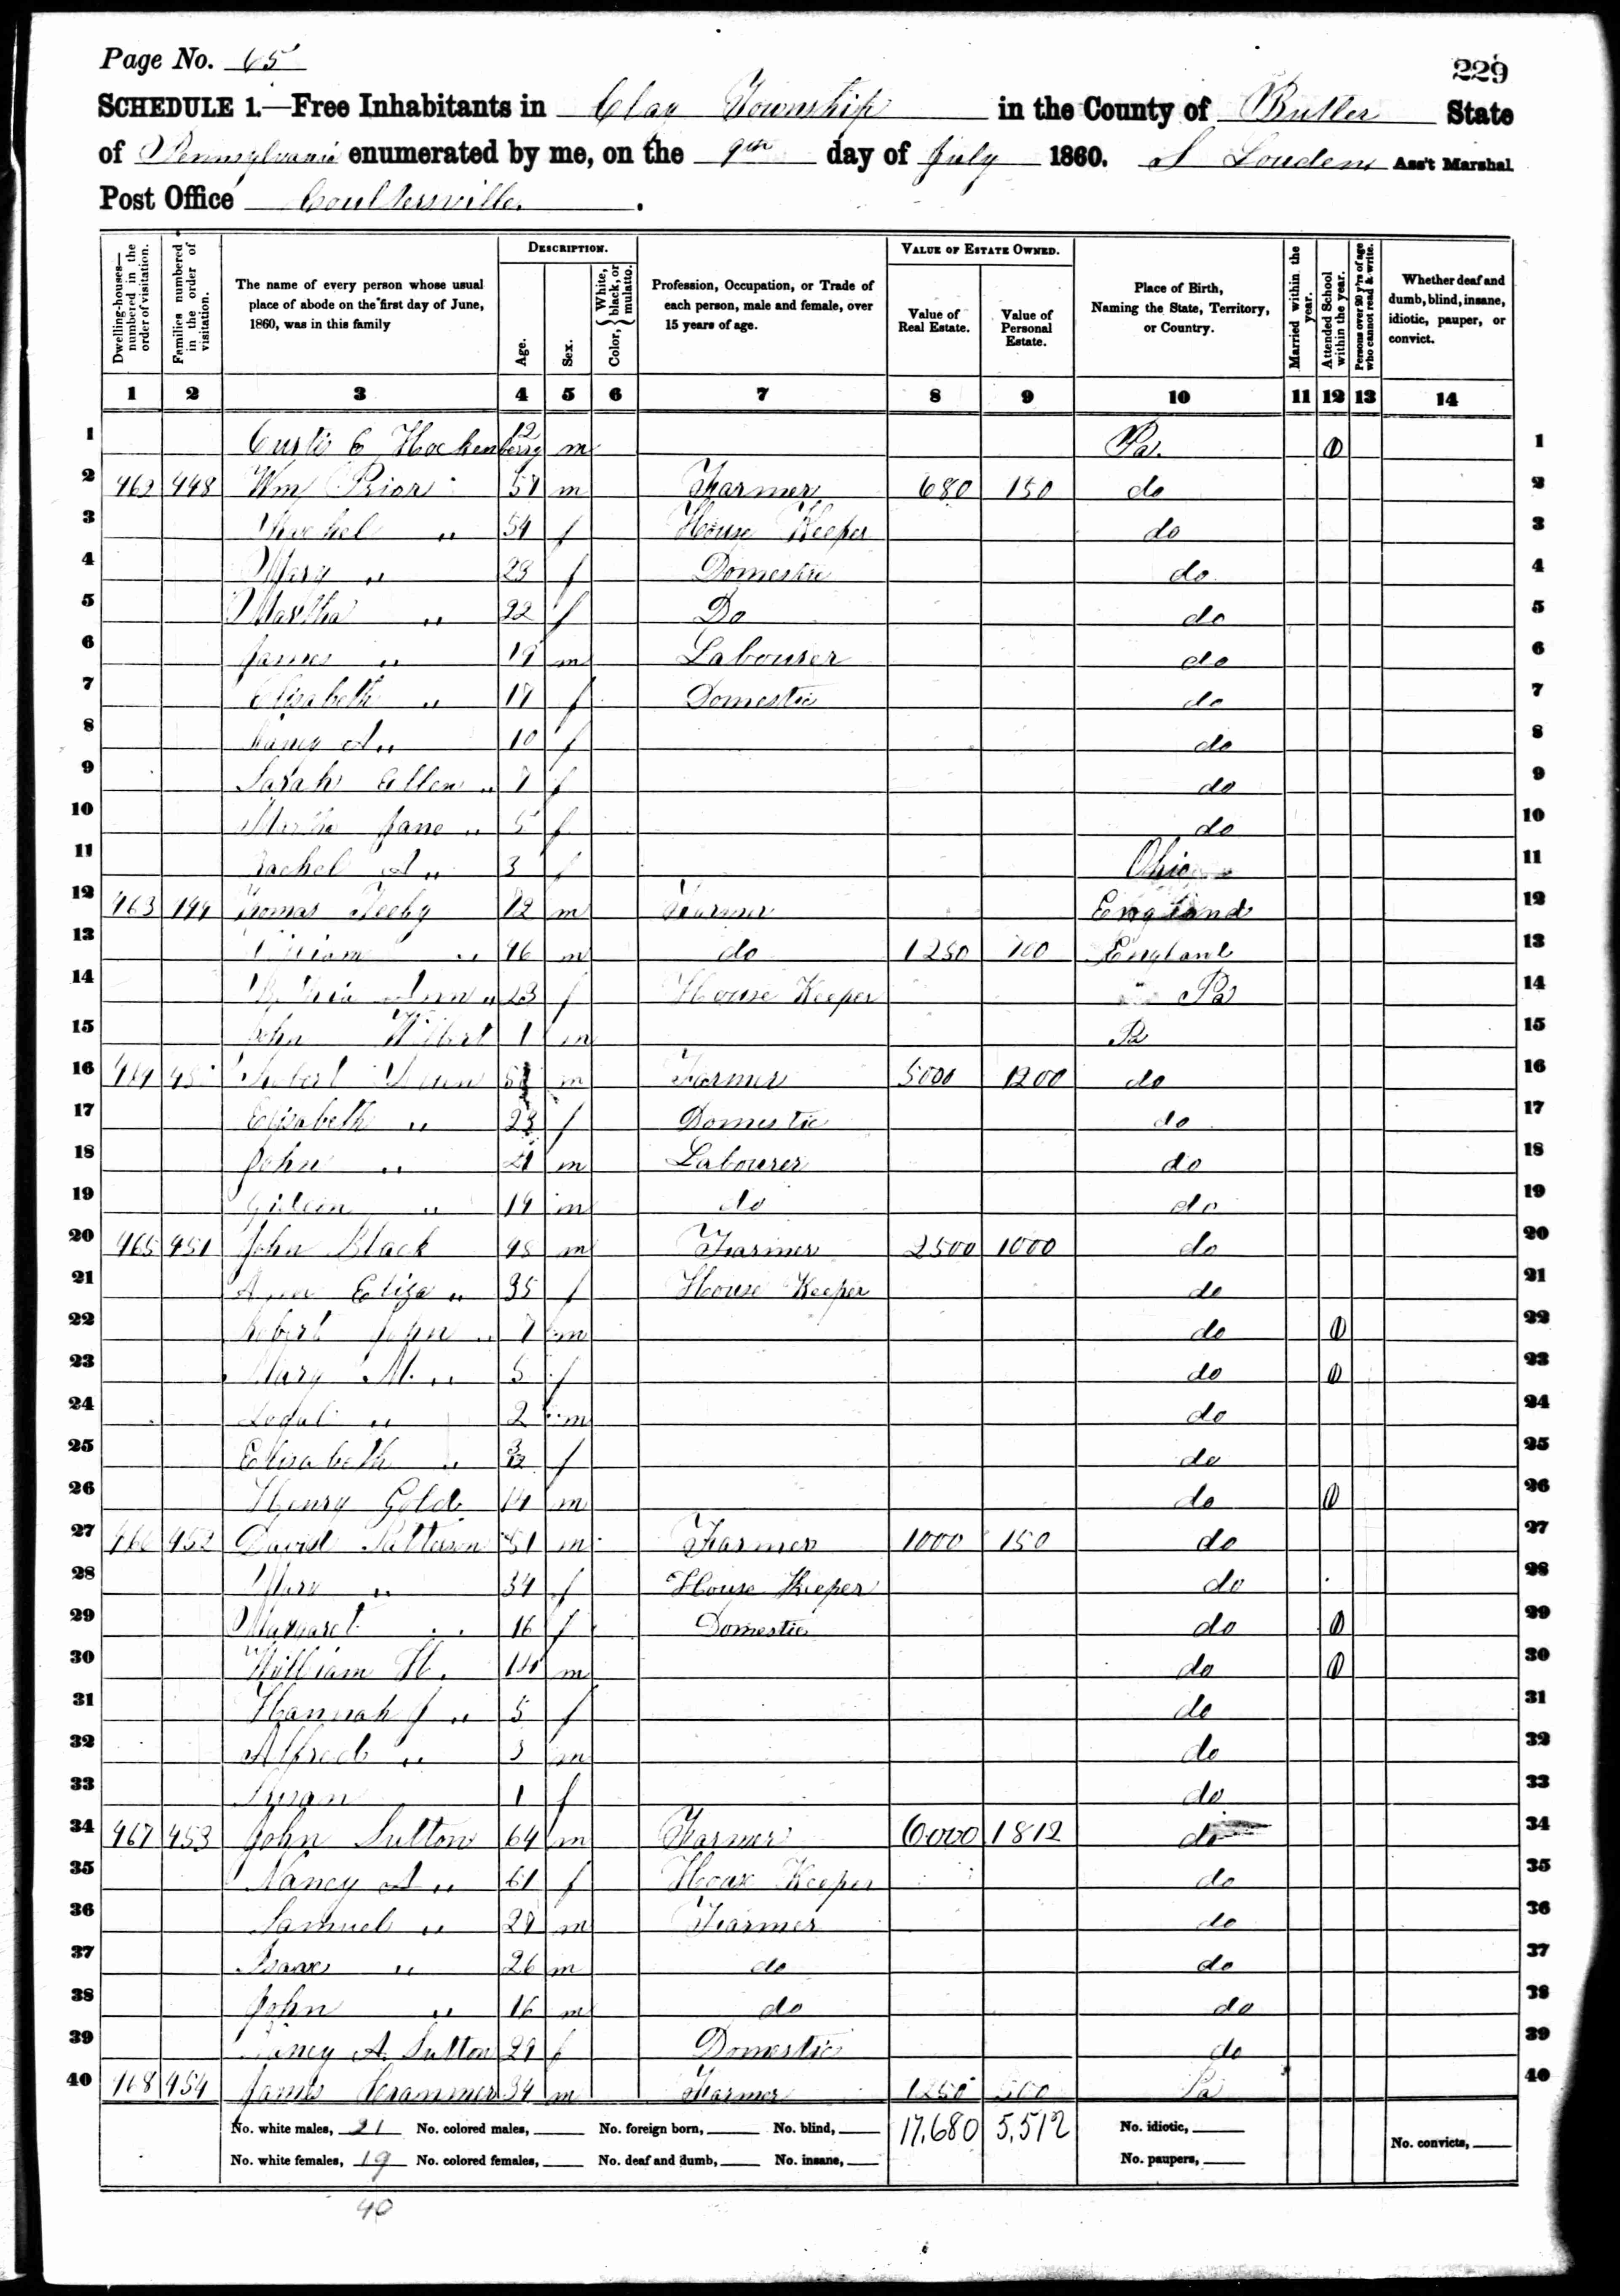 Page No. 65
229
SCHEDULE 1.—Free Inhabitants in Clay Township in the County of Butler State
of Pennsylvania enumerated by me, on the 9th day of July 1860. S Louden Ass't Marshal
Post Office Coultersville.
Dwelling-houses—numbered in the order of visitation. Families numbered in the order of visitation. The name of every person whose usual place of abode on the first day of June, 1860, was in this family DESCRIPTION. Age. Sex. Color, { White, black, or mulatto. Profession, Occupation, or Trade of each person, male and female, over 15 years of age. VALUE OF ESTATE OWNED. Value of Real Estate. Value of Personal Estate. Place of Birth, Naming the State, Territory, or Country. Married within the year. Attended School within the year. Persons over 20 y'rs of age who cannot read & write. Whether deaf and dumb, blind, insane, idiotic, pauper, or convict.
1 2 3 4 5 6 7 8 9 10 11 12 13 14
1 Curtis C Hockenberry 12 m Pa. 1 1
2 462 448 Wm Prior m Farmer 680 150 do 2
3 " 54 f House Keeper do 3
4 Mary " 23 f Domestic do 4
5 Martha " 22 f Do do 5
6 James " m Labourer do 6
7 Elisabeth " 17 f Domestic do 7
8 Nancy A " 10 f do 8
9 Sarah Ellen " 7 f do 9
10 Martha Jane " 5 f do 10
11 Rachel A " 3 f Ohio 11
12 463 449 Thomas m Farmer England 12
13 William " m do 1250 100 England 13
14 Ann " 23 f House Keeper Pa 14
15 John 1 m Pa 15
16 464 Robert m Farmer 5000 1200 do 16
17 Elisabeth " 23 f Domestic do 17
18 John " 21 m Labourer do 18
19 " 19 m do do 19
20 465 451 John Black 45 m Farmer 2500 1000 do 20
21 Eliza " 35 f House Keeper do 21
22 Robert John " 7 m do 1 22
23 Mary M. " 5 f do 1 23
24 " 2 m do 24
25 Elisabeth " 3/12 f do 25
26 Henry Gold 14 m do 1 26
27 466 452 David Patterson 51 m Farmer 1000 150 do 27
28 Mary " 34 f House Keeper do 28
29 Margaret " 16 f Domestic do 1 29
30 William H. m do 1 30
31 Hannah J " 5 f do 31
32 Alfred " 3 m do 32
33 Susan 1 f do 33
34 467 453 John Sutton 64 m Farmer 6000 1812 do 34
35 Nancy A " 61 f House Keeper do 35
36 Samuel " 28 m Farmer do 36
37 Isaac " 26 m do do 37
38 John " 16 m do do 38
39 Nancy A. Sutton 21 f Domestic do 39
40 468 454 James Cranmer 34 m Farmer 1250 500 Pa 40
No. white males, 21 No. colored males, No. foreign born, No. blind, 17,680 5,512 No. idiotic,
No. white females, 19 No. colored females, No. deaf and dumb, No. insane, No. paupers, No. convicts,
40